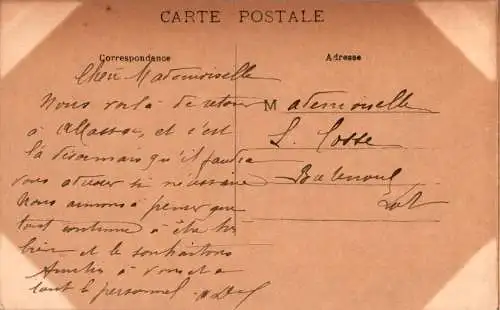 CARTE POSTALE
Correspondance
Chère Mademoiselle
Nous voilà de retour
à Allassac, et c'est
là désormais qu'il faudra
vous adresser si nécessaire
Nous aimons à penser que
tout continue à être très
bien et le souhaitons
Amitiés à vous et à
tout le personnel.
Adresse
Mademoiselle
L. Cosse
Lot